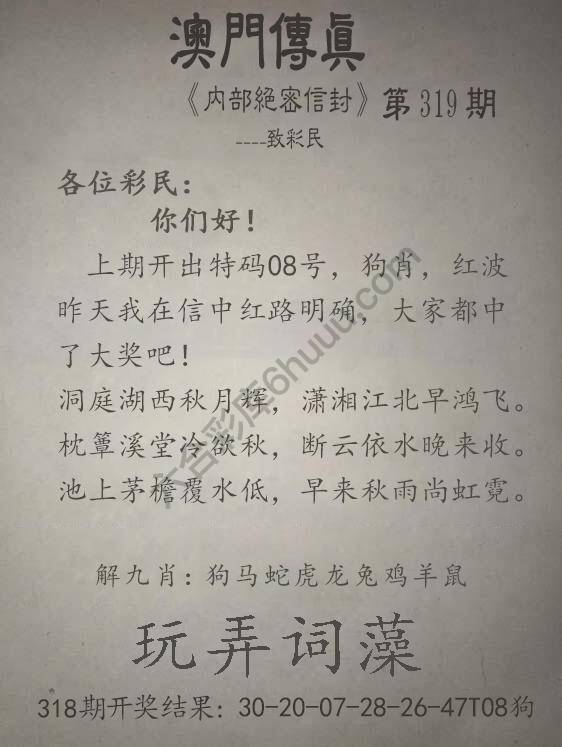 澳門傳眞
《内部絕密信封》第319期
----致彩民
各位彩民：
你们好！
上期开出特码08号，狗肖，红波
昨天我在信中红路明确，大家都中
了大奖吧！
洞庭湖西秋月辉，潇湘江北早鸿飞。
枕簟溪堂冷欲秋，断云依水晚来收。
池上茅檐覆水低，早来秋雨尚虹霓。
解九肖：狗马蛇虎龙兔鸡羊鼠
玩弄词藻
318期开奖结果：30-20-07-28-26-47T08狗
六合彩库6huuu.com